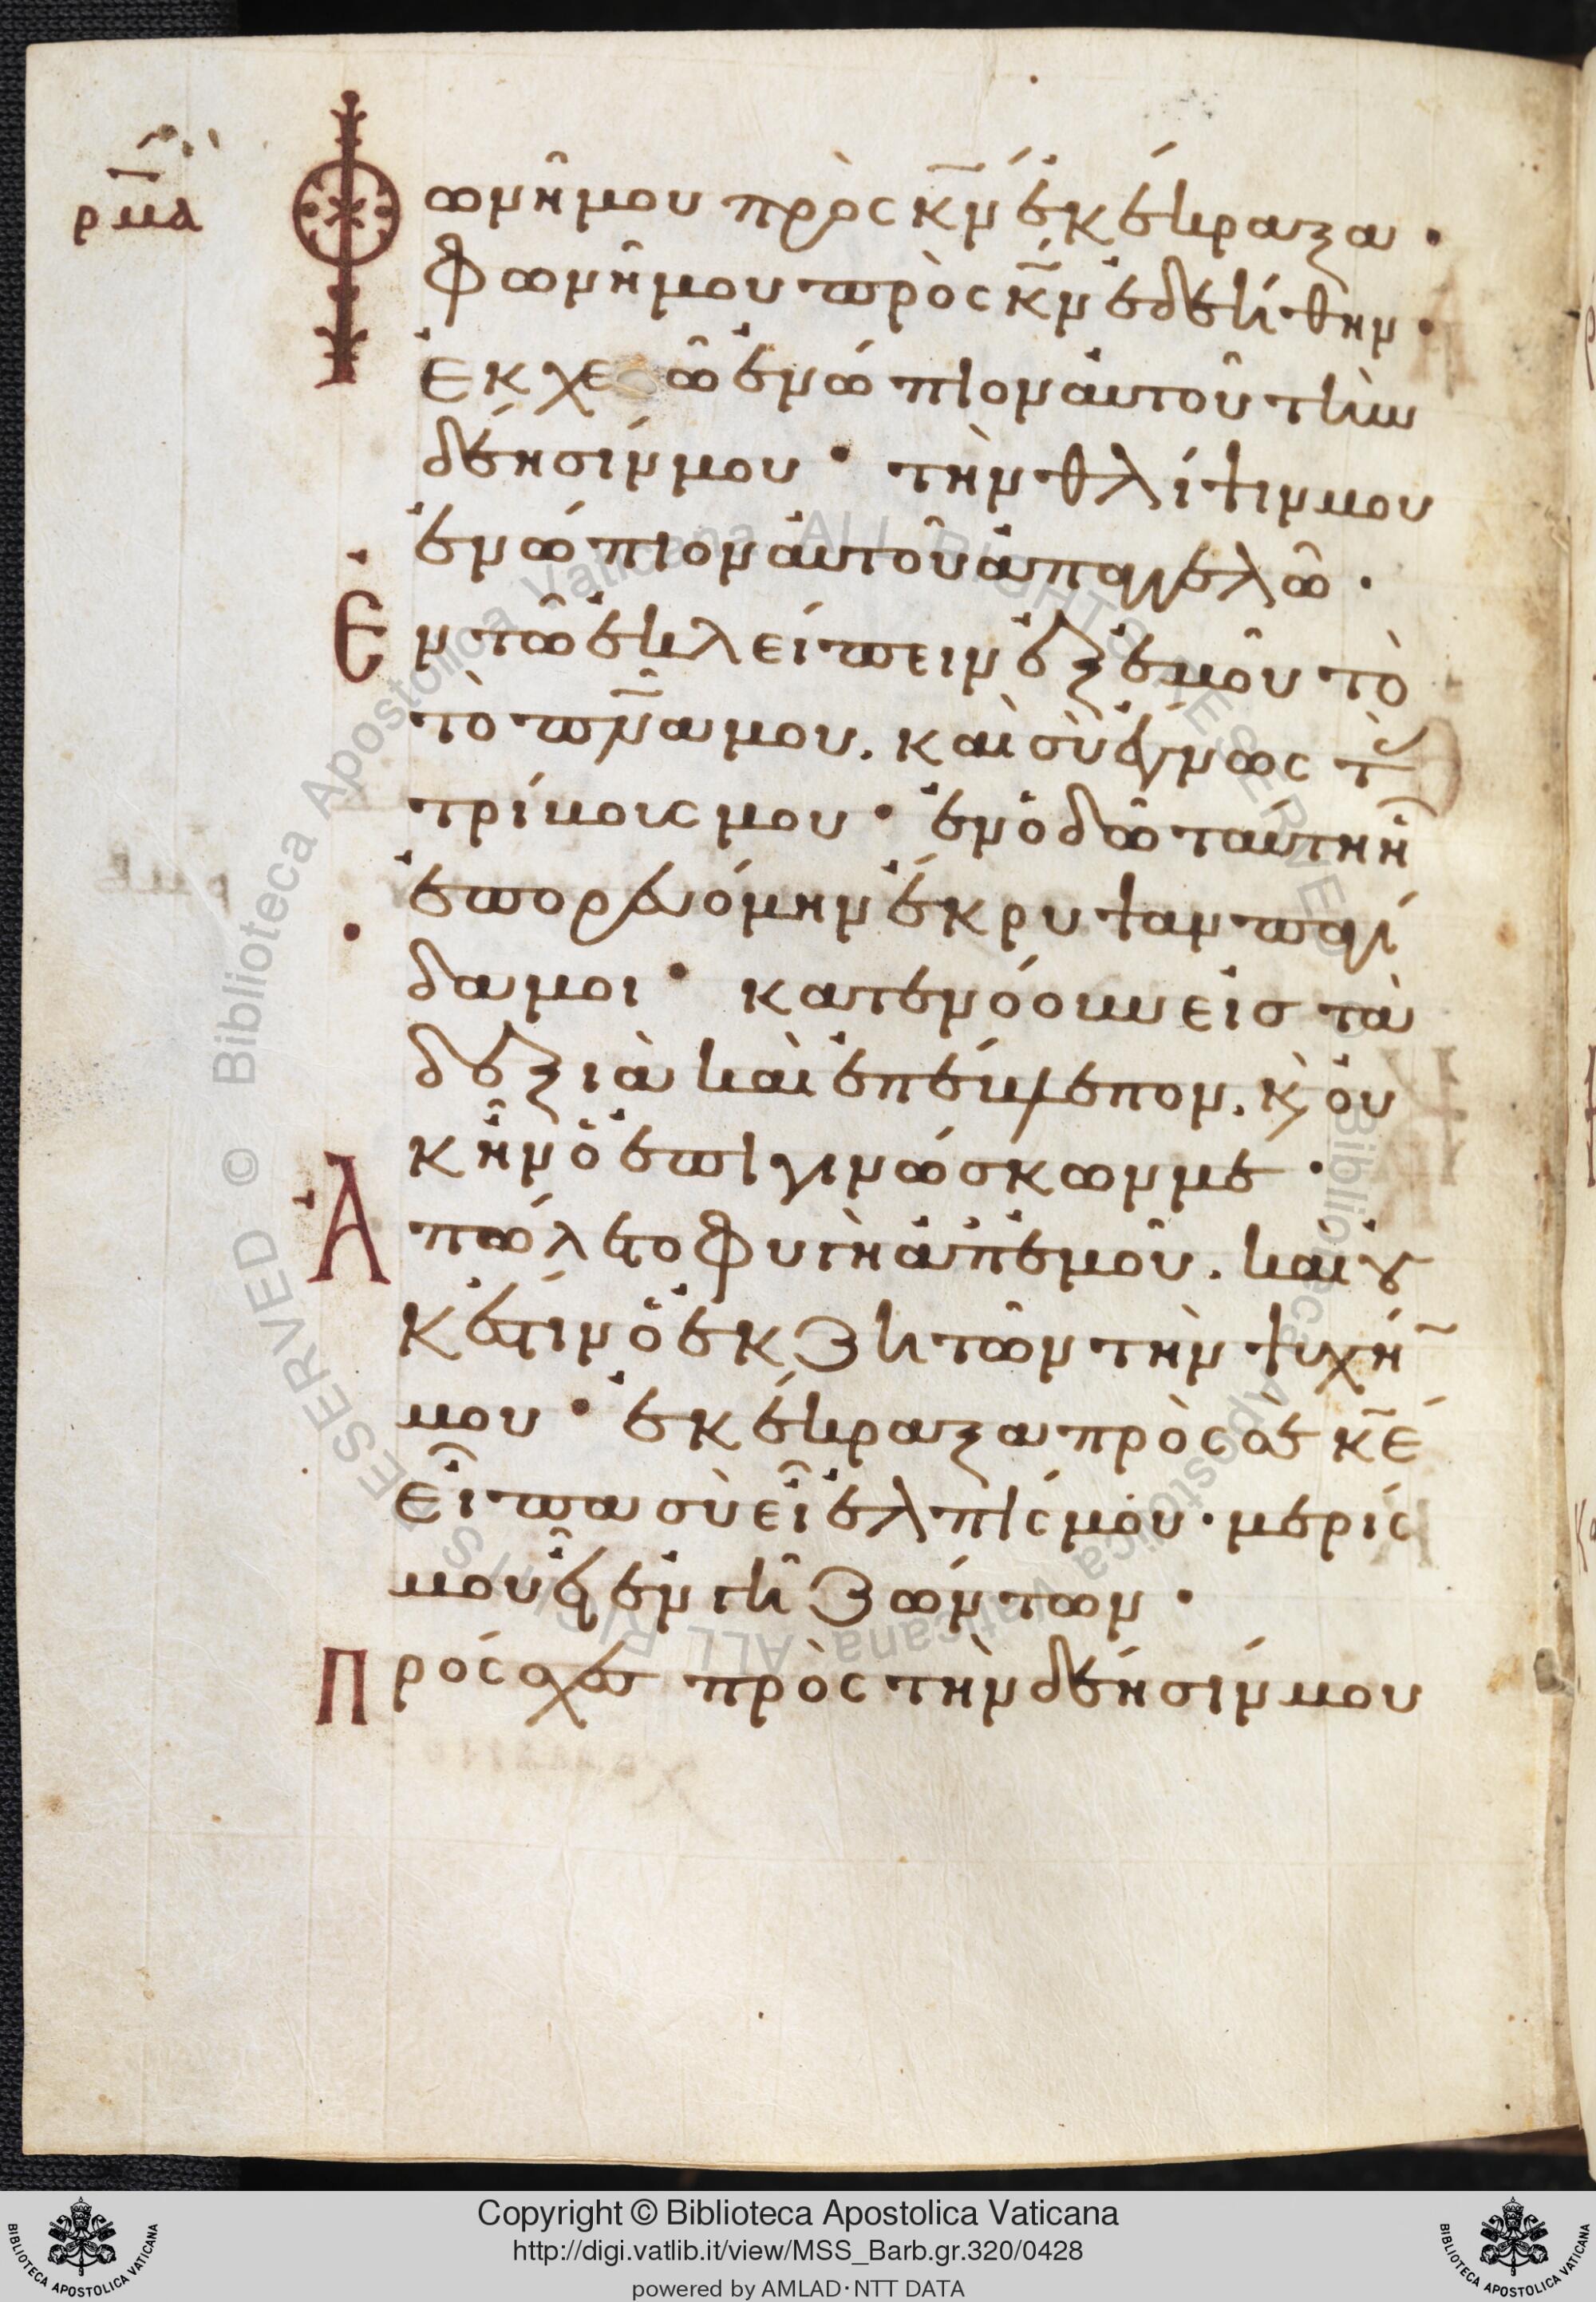 ρμα
Φωνῆ μου πρὸς κν̄ ἐκέκραξα·
φωνῆ μου πρὸς κν̄ ἐδεήθην·
ἐκχεῶ ἐνώπιον αὐτοῦ τὴν
δέησίν μου· τὴν θλίψιν μου
ἐνώπιον αὐτοῦ ἀπαγγελῶ·
Ἐν τῶ ἐκλείπειν ἐξ ἐμοῦ τὸ
τὸ πνᾶ μου. καὶ σὺ ἔγνως τὰς
τρίβους μου· ἐν ὁδῶ ταύτη ἧ
ἐπορευόμην ἔκρυψαν παγί
δα μοι· κατενόουν εἰς τὰ
δεξιὰ καὶ ἐπέβλεπον. κ̀ οὐ
κ ἦν ὁ ἐπιγινώσκων με·
Ἀπώλετο φυγὴ ἀπ' ἐμοῦ. καὶ οὐ
κ ἔστιν ὁ ἐκζητῶν τὴν ψυχή̄
μου· ἐκέκραξα πρὸς σὲ κ̄ε
εἶπα σὺ εἶ ἐλπίς μου· μερίς
μου εἶ ἐν γῆ ζώντων·
Πρόσχες πρὸς τὴν δέησίν μου
Copyright © Biblioteca Apostolica Vaticana
http://digi.vatlib.it/view/MSS_Barb.gr.320/0428
powered by AMLAD·NTT DATA
BIBLIOTECA APOSTOLICA VATICANA
BIBLIOTECA APOSTOLICA VATICANA
© Biblioteca Apostolica Vaticana ALL RIGHTS RESERVED
© Biblioteca Apostolica Vaticana ALL RIGHTS RESERVED